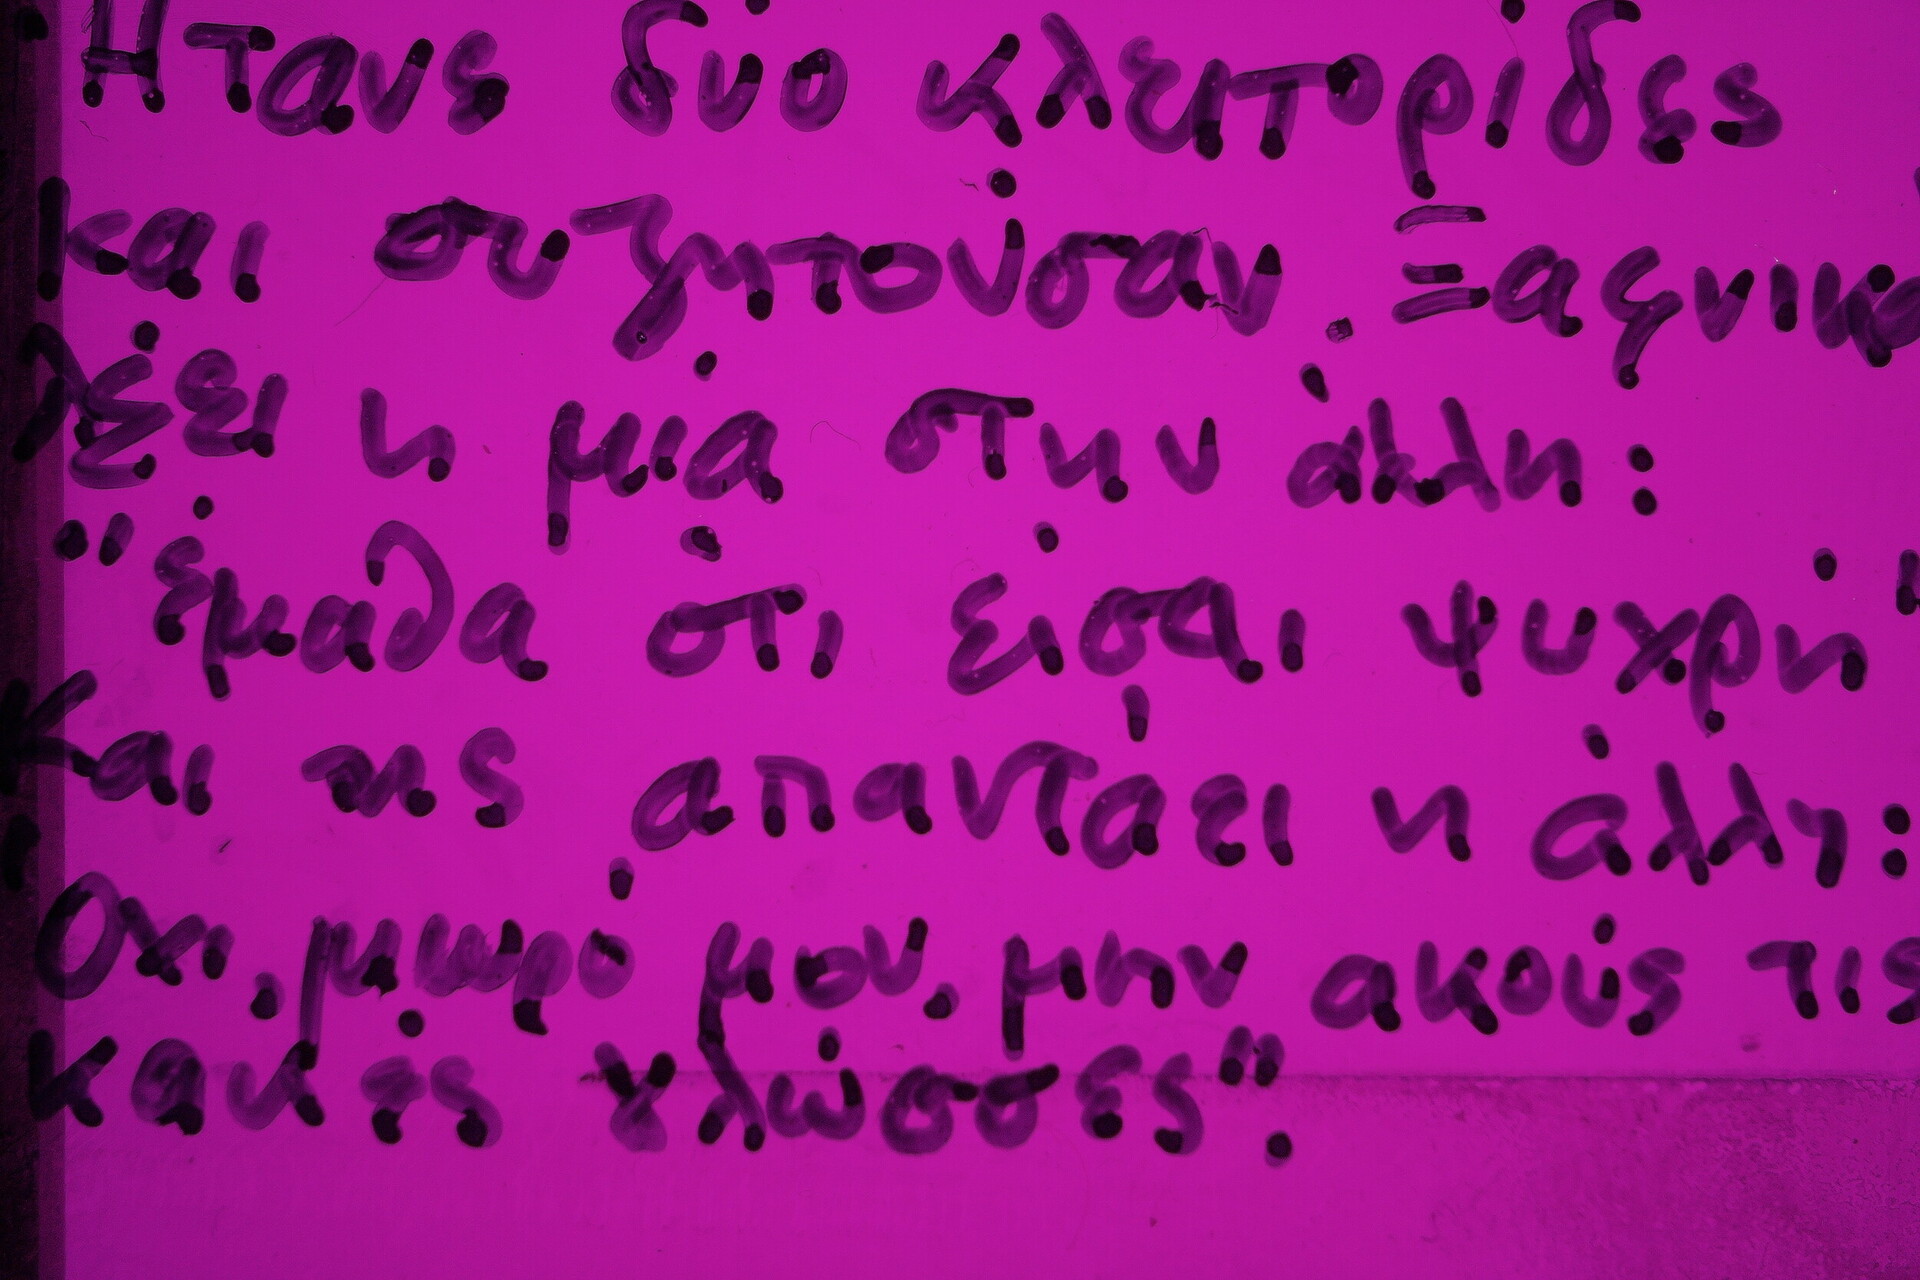 Ήτανε δύο κλειτορίδες
και συζητούσαν. Ξαφνικά
λέει η μία στην άλλη:
"έμαθα ότι είσαι ψυχρή"
Και της απαντάει η άλλη:
Όχι, μωρό μου, μην ακούς τις
κακές γλώσσες".